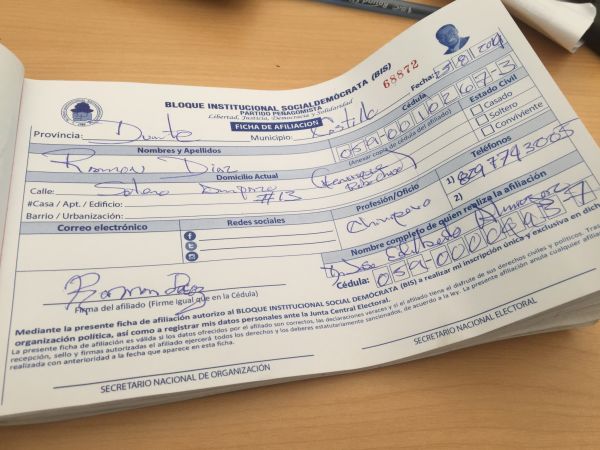 BLOQUE INSTITUCIONAL SOCIALDEMÓCRATA (BIS)
PARTIDO PEÑAGOMISTA
Libertad, Justicia, Democracia y Solidaridad
68872
FICHA DE AFILIACIÓN
Fecha:
Provincia: Duarte
Municipio: Castillo
Cédula
(Anexar copia de cédula del afiliado)
Estado Civil
Casado
Soltero
Conviviente
Nombres y Apellidos
Ramon Diaz
Domicilio Actual
Calle:
#Casa / Apt. / Edificio: #13
Barrio / Urbanización:
Teléfonos
1) 8297743005
2)
Profesión/Oficio
Correo electrónico
Redes sociales
Nombre completo de quien realiza la afiliación
Cédula:
Ramon Diaz
Firma del afiliado (Firme igual que en la Cédula)
Mediante la presente ficha de afiliación autorizo al BLOQUE INSTITUCIONAL SOCIAL DEMÓCRATA (BIS) a realizar mi inscripción única y exclusiva en dicha
organización política, así como a registrar mis datos personales ante la Junta Central Electoral.
La presente ficha de afiliación es válida si los datos ofrecidos por el afiliado son correctos, las declaraciones veraces y si el afiliado tiene el disfrute de sus derechos civiles y políticos. Tras
recepción, sello y firmas autorizadas el afiliado ejercerá todos los derechos y los deberes estatutariamente sancionados, de acuerdo a la ley. La presente afiliación anula cualquier afiliación
realizada con anterioridad a la fecha que aparece en esta ficha.
SECRETARIO NACIONAL DE ORGANIZACIÓN
SECRETARIO NACIONAL ELECTORAL